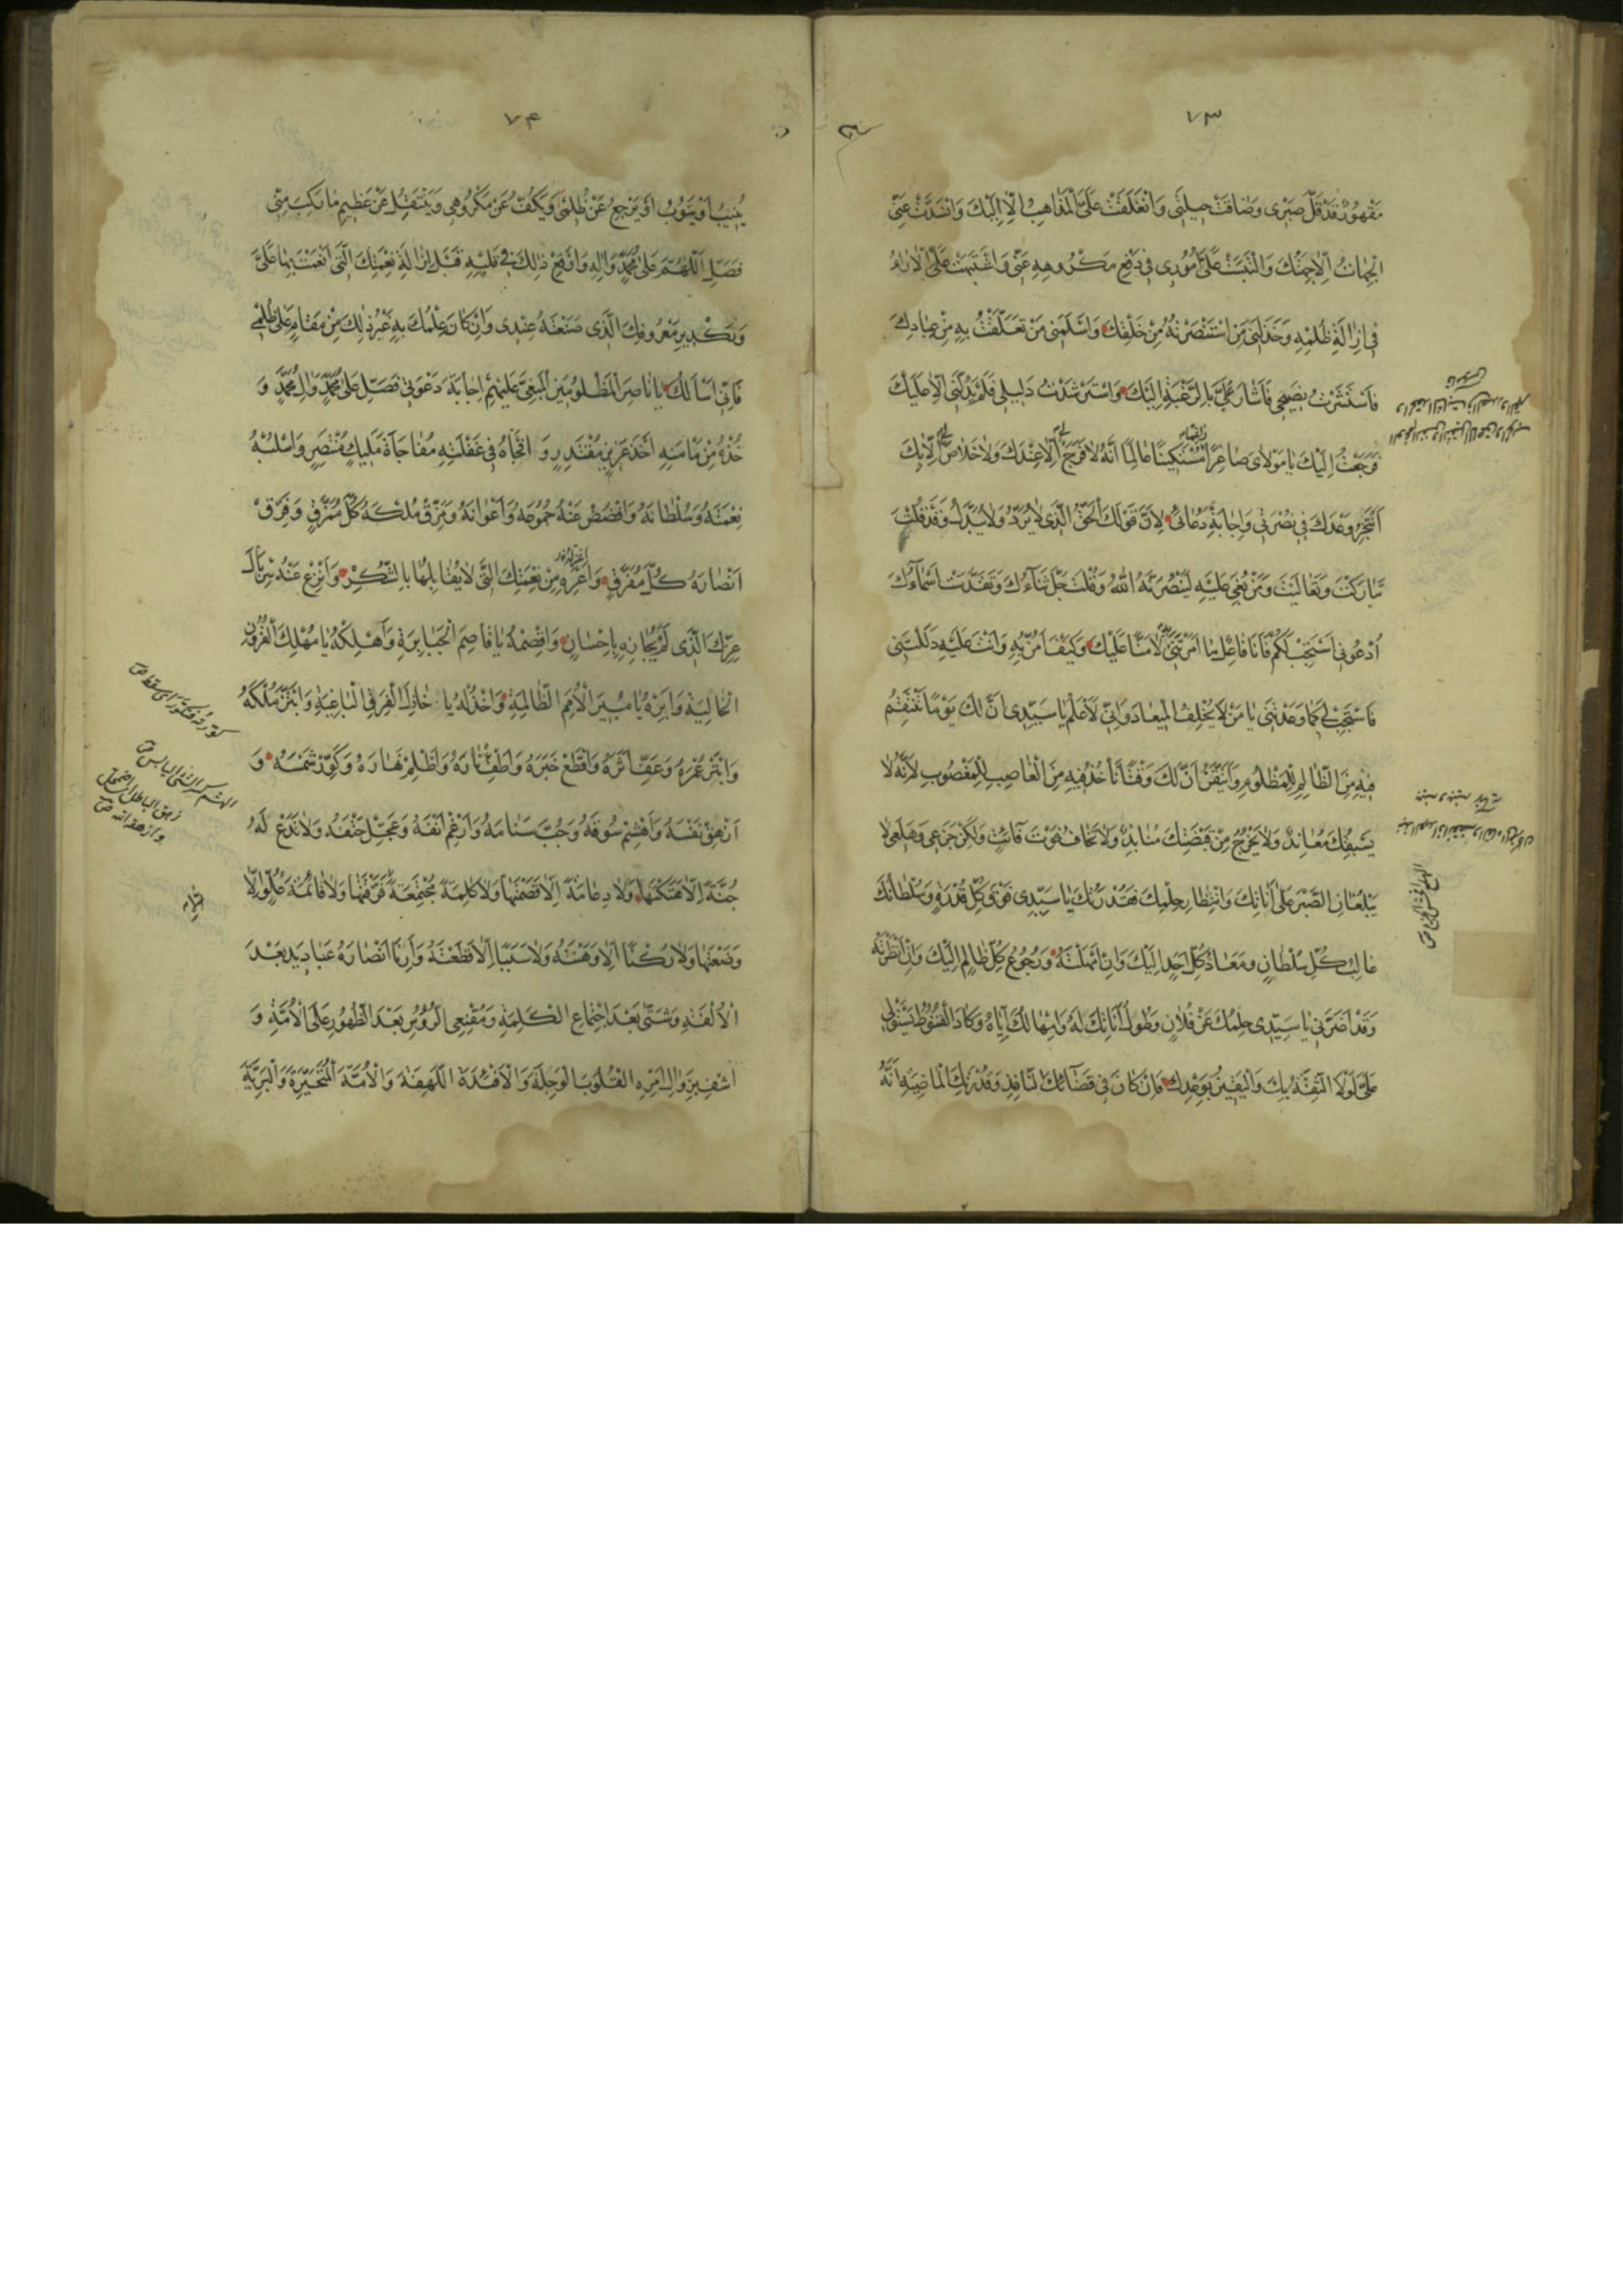 ٧٣
مَقْهُورٌ قَدْ قَلَّ صَبْرِي وَضَاقَتْ حِيلَتِي وَانْغَلَقَتْ عَلَيَّ الْمَذَاهِبُ اِلَّا اِلَيْكَ وَانْسَدَّتْ عَنِّي
الْجِهَاتُ اِلَّا جِهَتُكَ وَالْتَبَسَتْ عَلَيَّ اُمُورِي فِي دَفْعِ مَكْرُوهِهِ عَنِّي وَاشْتَبَهَتْ عَلَيَّ الْاٰرَاءُ
فِي اِزَالَةِ ظُلْمِهِ وَخَذَلَنِي مَنِ اسْتَنْصَرْتُهُ مِنْ خَلْقِكَ وَاَسْلَمَنِي مَنْ تَعَلَّقْتُ بِهِ مِنْ عِبَادِكَ
فَاسْتَشَرْتُ نَصِيحِي فَاَشَارَ عَلَيَّ بِالرَّغْبَةِ اِلَيْكَ وَاسْتَرْشَدْتُ دَلِيلِي فَلَمْ يَدُلَّنِي اِلَّا عَلَيْكَ
فَرَجَعْتُ اِلَيْكَ يَا مَوْلَايَ صَاغِرًا مُسْتَكِينًا عَالِمًا اَنَّهُ لَا فَرَجَ اِلَّا عِنْدَكَ وَلَا خَلَاصَ اِلَّا بِكَ
اَنْتَجِزُ وَعْدَكَ فِي نُصْرَتِي وَاِجَابَةِ دُعَائِي لِاَنَّ قَوْلَكَ الْحَقُّ الَّذِي لَا يُرَدُّ وَلَا يُبَدَّلُ وَقَدْ قُلْتَ
تَبَارَكْتَ وَتَعَالَيْتَ وَمَنْ بُغِيَ عَلَيْهِ لَيَنْصُرَنَّهُ اللهُ وَقُلْتَ جَلَّ ثَنَاءُكَ وَتَقَدَّسَتْ اَسْمَاءُكَ
اُدْعُونِي اَسْتَجِبْ لَكُمْ فَاَنَا فَاعِلٌ مَا اَمَرْتَنِي لَا مَنًّا عَلَيْكَ وَكَيْفَ اَمُنُّ بِهِ وَاَنْتَ عَلَيْهِ دَلَلْتَنِي
فَاسْتَجِبْ لِي كَمَا وَعَدْتَنِي يَا مَنْ لَا يُخْلِفُ الْمِيعَادَ وَاِنِّي لَاَعْلَمُ يَا سَيِّدِي اَنَّ لَكَ يَوْمًا تَنْتَقِمُ
فِيهِ مِنَ الظَّالِمِ لِلْمَظْلُومِ وَاَتَيَقَّنُ اَنَّ لَكَ وَقْتًا تَأْخُذُ فِيهِ مِنَ الْغَاصِبِ لِلْمَغْصُوبِ لِاَنَّهُ لَا
يَسْبِقُكَ مُعَانِدٌ وَلَا يَخْرُجُ مِنْ قَبْضَتِكَ مُنَابِذٌ وَلَا تَخَافُ فَوْتَ فَائِتٍ وَلٰكِنْ جَزَعِي وَهَلَعِي لَا
يَبْلُغَانِ الصَّبْرَ عَلَى اَنَاتِكَ وَانْتِظَارِ حِلْمِكَ فَقُدْرَتُكَ يَا سَيِّدِي فَوْقَ كُلِّ قُدْرَةٍ وَسُلْطَانُكَ
غَالِبُ كُلِّ سُلْطَانٍ وَمَعَادُ كُلِّ اَحَدٍ اِلَيْكَ وَاِنْ اَمْهَلْتَهُ وَرُجُوعُ كُلِّ ظَالِمٍ اِلَيْكَ وَاِنْ اَنْظَرْتَهُ
وَقَدْ اَضَرَّنِي يَا سَيِّدِي حِلْمُكَ عَنْ فُلَانٍ وَطُولُ اَنَاتِكَ لَهُ وَاِمْهَالُكَ اِيَّاهُ وَكَادَ الْقُنُوطُ يَسْتَوْلِي
عَلَيَّ لَوْلَا الثِّقَةُ بِكَ وَالْيَقِينُ بِوَعْدِكَ فَاِنْ كَانَ فِي قَضَائِكَ النَّافِذِ وَقُدْرَتِكَ الْمَاضِيَةِ اَنَّهُ
الهلع افحش الجزع ص
٧۴
يُنِيبُ اَوْ يَتُوبُ اَوْ يَرْجِعُ عَنْ ظُلْمِي وَيَكُفُّ عَنْ مَكْرُوهِي وَيَنْتَقِلُ عَنْ عَظِيمِ مَا رَكِبَ مِنِّي
فَصَلِّ اَللّٰهُمَّ عَلٰى مُحَمَّدٍ وَاٰلِهِ وَاَوْقِعْ ذٰلِكَ فِي قَلْبِهِ قَبْلَ اِزَالَةِ نِعْمَتِكَ الَّتِي اَنْعَمْتَ بِهَا عَلَيَّ
وَتَكْدِيرِ مَعْرُوفِكَ الَّذِي صَنَعْتَهُ عِنْدِي وَاِنْ كَانَ عِلْمُكَ بِهِ غَيْرَ ذٰلِكَ مِنْ مَقَامٍ عَلٰى ظُلْمِي
فَاِنِّي اَسْاَلُكَ يَا نَاصِرَ الْمَظْلُومِينَ الْمَبْغِيِّ عَلَيْهِمْ اِجَابَةَ دَعْوَتِي فَصَلِّ عَلٰى مُحَمَّدٍ وَاٰلِ مُحَمَّدٍ وَ
خُذْهُ مِنْ مَأْمَنِهِ اَخْذَ عَزِيزٍ مُقْتَدِرٍ وَافْجَاْهُ فِي غَفْلَتِهِ مُفَاجَاَةَ مَلِيكٍ مُنْتَصِرٍ وَاسْلُبْهُ
نِعْمَتَهُ وَسُلْطَانَهُ وَافْضُضْ عَنْهُ جُمُوعَهُ وَاَعْوَانَهُ وَمَزِّقْ مُلْكَهُ كُلَّ مُمَزَّقٍ وَفَرِّقْ
اَنْصَارَهُ كُلَّ مُفَرَّقٍ وَاَعْرِهِ مِنْ نِعْمَتِكَ الَّتِي لَا يُقَابِلُهَا بِالشُّكْرِ وَانْزِعْ عَنْهُ سِرْبَالَ
عِزِّكَ الَّذِي لَمْ يُجَازِهِ بِاِحْسَانٍ وَاقْصِمْهُ يَا قَاصِمَ الْجَبَابِرَةِ وَاَهْلِكْهُ يَا مُهْلِكَ الْقُرُونِ
الْخَالِيَةِ وَاَبِرْهُ يَا مُبِيرَ الْاُمَمِ الظَّالِمَةِ وَاخْذُلْهُ يَا خَاذِلَ الْفِرَقِ الْبَاغِيَةِ وَابْتَزَّ مُلْكَهُ
وَابْتُرْ عُمْرَهُ وَعَفِّ اَثَرَهُ وَاقْطَعْ خَبَرَهُ وَاَطْفِ نَارَهُ وَاَظْلِمْ نَهَارَهُ وَكَوِّرْ شَمْسَهُ وَ
اَزْهِقْ نَفْسَهُ وَاَهْشِمْ سُوقَهُ وَجُبَّ سَنَامَهُ وَاَرْغِمْ اَنْفَهُ وَعَجِّلْ حَتْفَهُ وَلَا تَدَعْ لَهُ
جُنَّةً اِلَّا هَتَكْتَهَا وَلَا دِعَامَةً اِلَّا قَصَمْتَهَا وَلَا كَلِمَةً مُجْتَمِعَةً اِلَّا فَرَّقْتَهَا وَلَا قَائِمَةَ عُلُوٍّ اِلَّا
وَضَعْتَهَا وَلَا رُكْنًا اِلَّا وَهَنْتَهُ وَلَا سَبَبًا اِلَّا قَطَعْتَهُ وَاَرِنَا اَنْصَارَهُ عَبَادِيدَ بَعْدَ
الْاُلْفَةِ وَشَتّٰى بَعْدَ اجْتِمَاعِ الْكَلِمَةِ وَمُقْنِعِي الرُّؤُسِ بَعْدَ الظُّهُورِ عَلَى الْاُمَّةِ وَ
اشْفِ بِزَوَالِ اَمْرِهِ الْقُلُوبَ الْوَجِلَةَ وَالْاَفْئِدَةَ اللَّهِفَةَ وَالْاُمَّةَ الْمُتَحَيِّرَةَ وَالْبَرِيَّةَ
الهشم كسر الشئ اليابس ص
زهق الباطل اضمحل
وازهقه الله ص